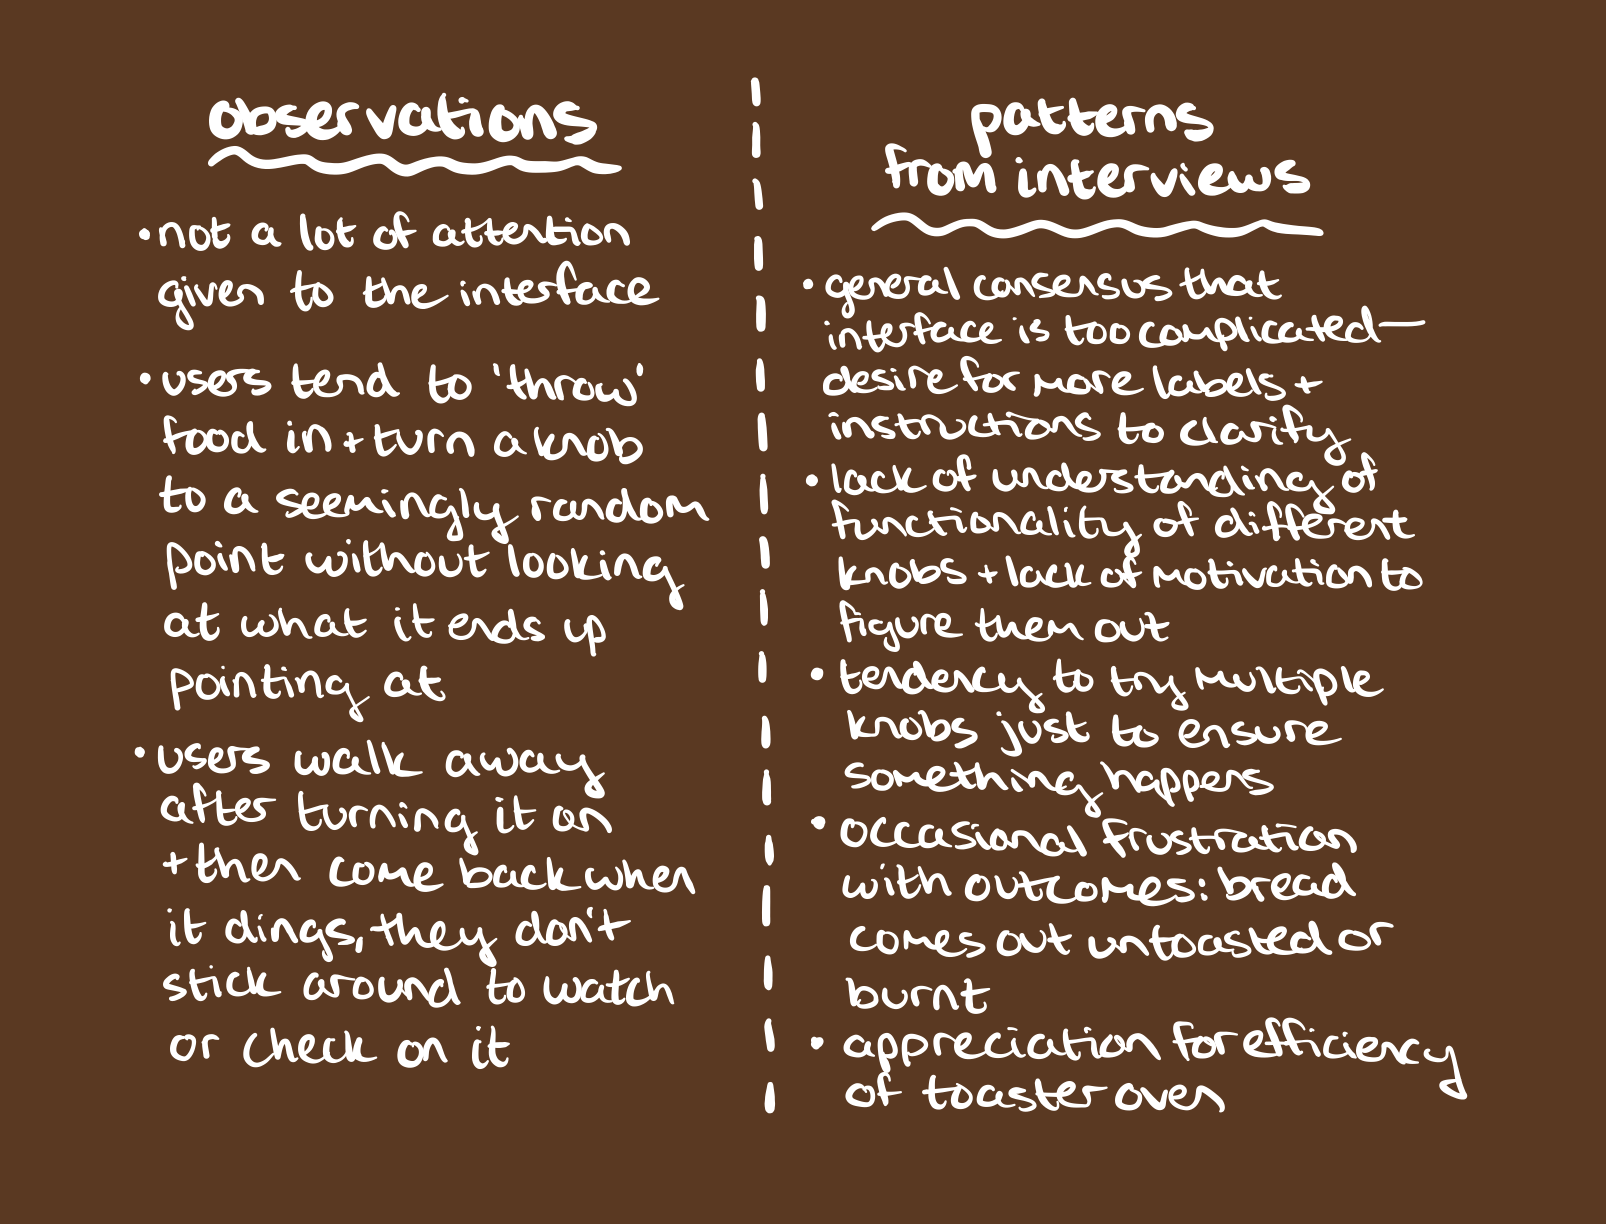 observations
• not a lot of attention
given to the interface
• users tend to 'throw'
food in + turn a knob
to a seemingly random
point without looking
at what it ends up
pointing at
• users walk away
after turning it on
+ then come back when
it dings, they don't
stick around to watch
or check on it
patterns
from interviews
• general consensus that
interface is too complicated—
desire for more labels +
instructions to clarify
• lack of understanding of
functionality of different
knobs + lack of motivation to
figure them out
• tendency to try multiple
knobs just to ensure
something happens
• occasional frustration
with outcomes: bread
comes out untoasted or
burnt
• appreciation for efficiency
of toaster oven